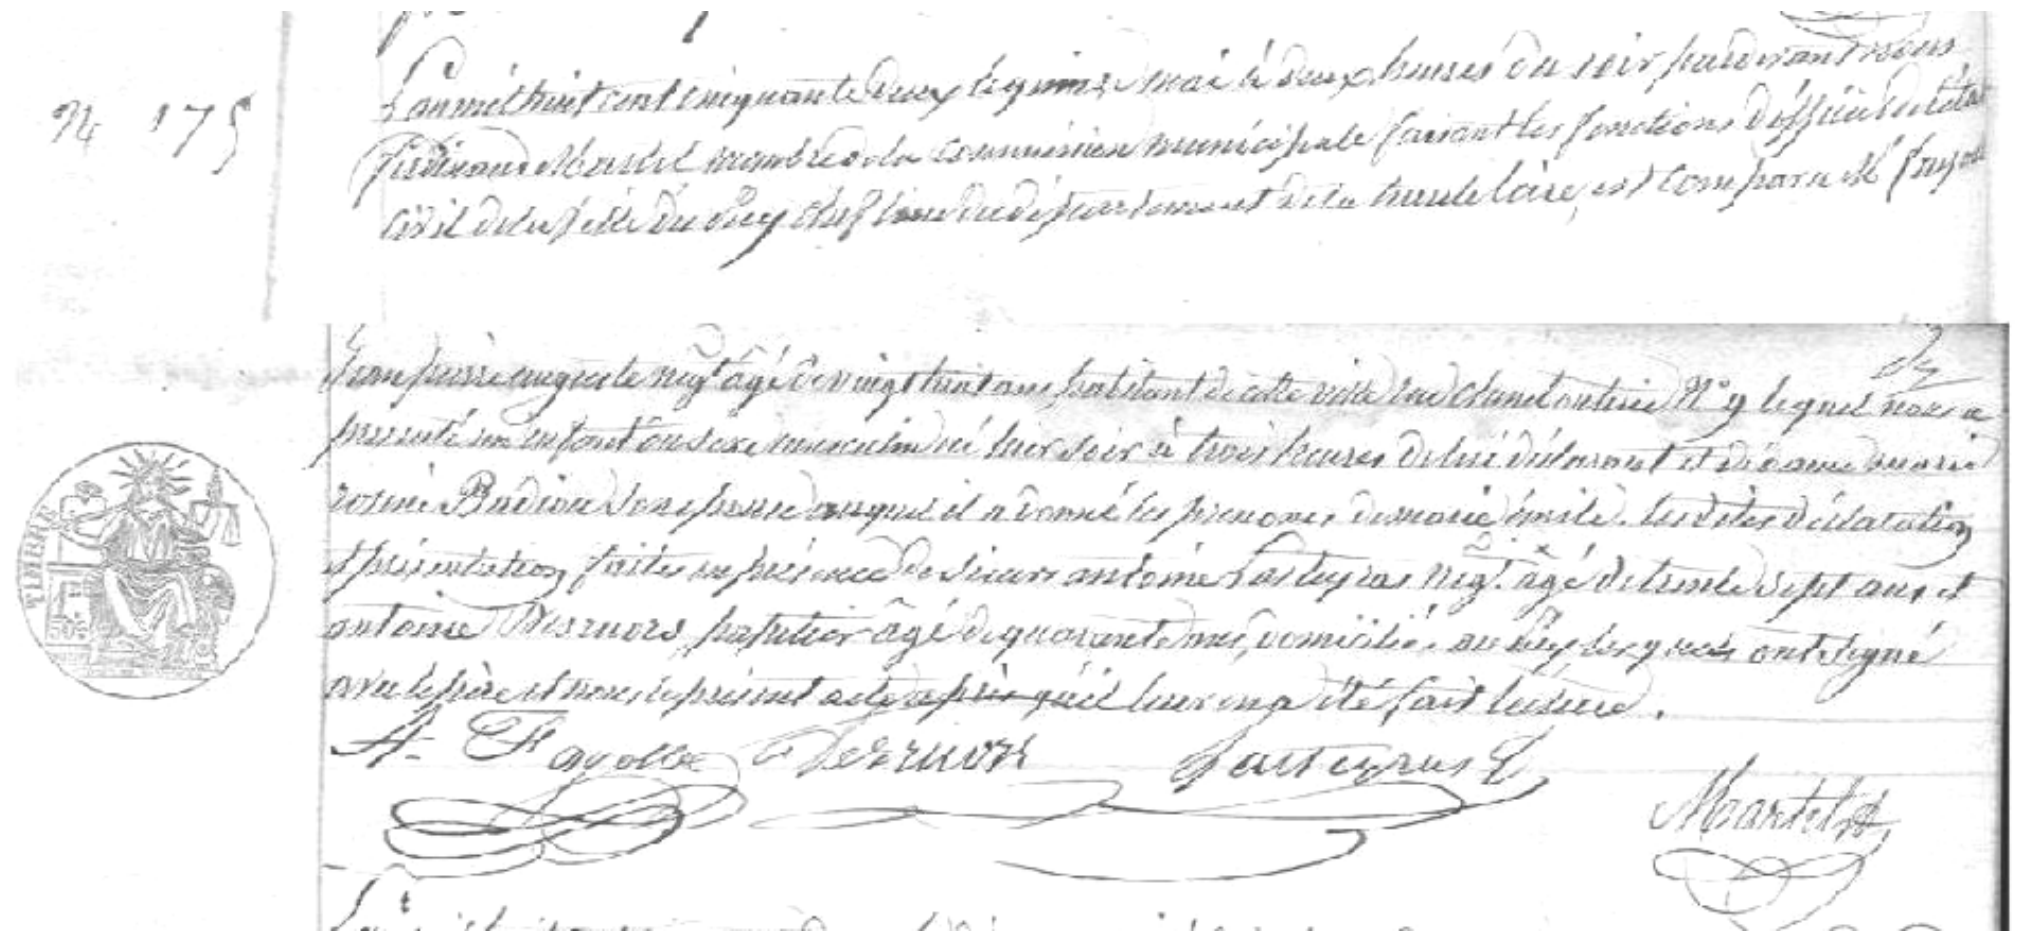 N 175
L'an mil huit cent cinquante deux le quinze mai à deux heures du soir, pardevant nous
Ferdinand Martel membre de la commission municipale faisant les fonctions d'officier de l'état
civil de la ville du Puy chef lieu du département de la haute loire, est comparu Mr fayolle
Jean pierre auguste négt âgé de vingt huit ans, habitant de cette ville rue Chenebouterie N° 9 lequel nous a
présenté un enfant du sexe masculin né hier soir à trois heures de lui déclarant et de dame marie
rosine Badiou son épouse auquel il a donné les prénoms de marie émile. Les dites déclaration
et présentation faites en présence de sieurs antoine Lasteyras négt. âgé de trente sept ans, et
antoine Desruors papetier âgé de quarante ans, domiciliés au Puy lesquels ont signé
avec le père et nous le présent acte après qu'il leur en a été fait lecture.
A. Fayolle Desruors Lasteyras
Martel
TIMBRE